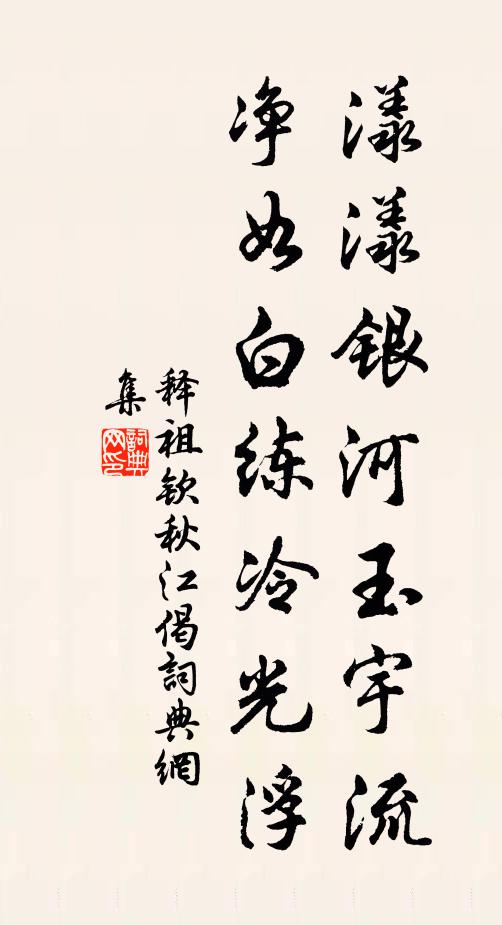 漾漾银河玉宇流
净如白练冷光浮
释祖钦秋江偈詞典網
集
詞典网印